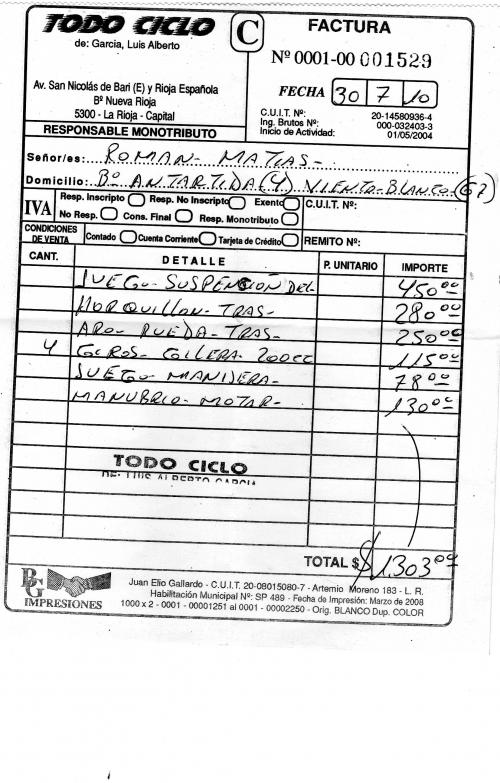 TODO CICLO
de: Garcia, Luis Alberto
Av. San Nicolás de Bari (E) y Rioja Española
Bº Nueva Rioja
5300 - La Rioja - Capital
RESPONSABLE MONOTRIBUTO
C
FACTURA
Nº 0001-00 001529
FECHA 30 7 10
C.U.I.T. Nº: 20-14580936-4
Ing. Brutos Nº: 000-032403-3
Inicio de Actividad: 01/05/2004
Señor/es: ROMAN - MATIAS -
Domicilio: Bº ANTARTIDA (4) VIENTO-BLANCO (67)
IVA
Resp. Inscripto Resp. No Inscripto Exento C.U.I.T. Nº:
No Resp. Cons. Final Resp. Monotributo
CONDICIONES DE VENTA Contado Cuenta Corriente Tarjeta de Crédito REMITO Nº:
CANT. DETALLE P. UNITARIO IMPORTE
JUEGO - SUSPENCION DEL- 450 00
HORQUILLON - TRAS - 280 00
ARO - RUEDA - TRAS - 250 00
4 COLLERA 200cc 115 00
JUEGO - MANIJERA - 78 00
MANUBRIO - MOTAR - 130 00
TODO CICLO
DE: LUIS ALBERTO GARCIA
TOTAL $ 1.303 00
BG IMPRESIONES
Juan Elio Gallardo - C.U.I.T. 20-08015080-7 - Artemio Moreno 183 - L. R.
Habilitación Municipal Nº: SP 489 - Fecha de Impresión: Marzo de 2008
1000 x 2 - 0001 - 00001251 al 0001 - 00002250 - Orig. BLANCO Dup. COLOR